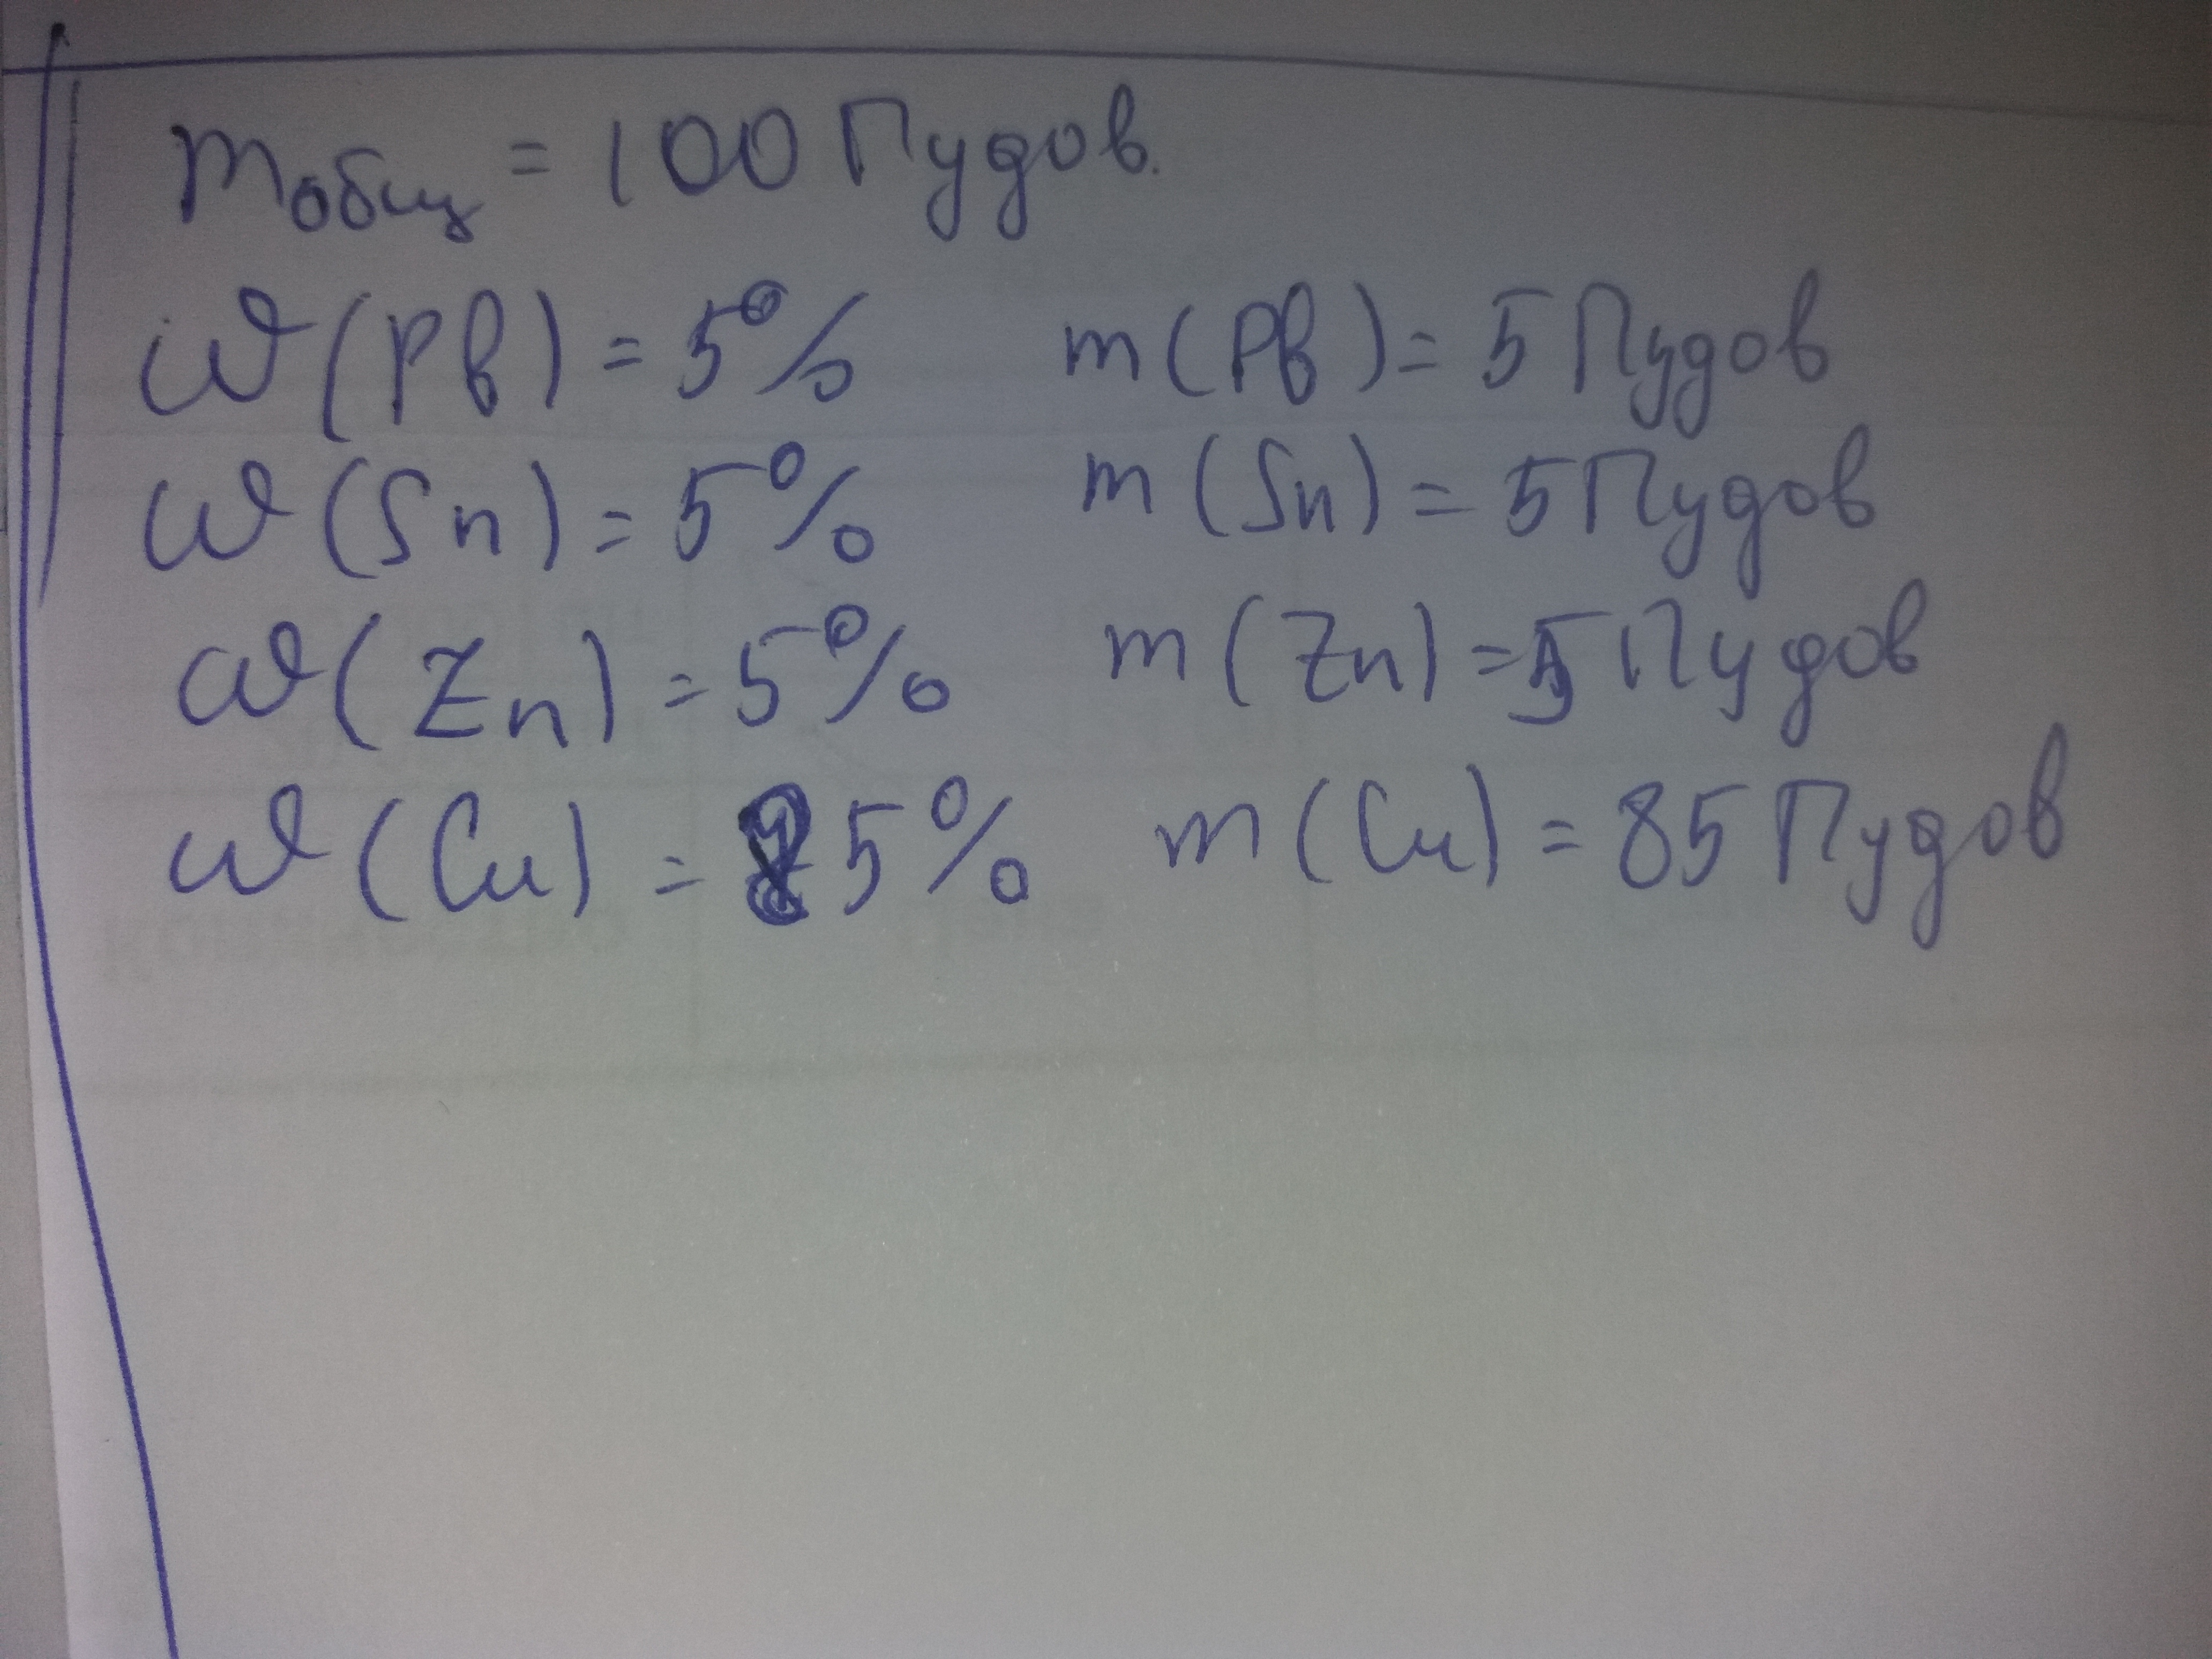 mобщ = 100 Пудов.
ω(Pb) = 5% m(Pb) = 5 Пудов
ω(Sn) = 5% m(Sn) = 5 Пудов
ω(Zn) = 5% m(Zn) = 5 Пудов
ω(Cu) = 85% m(Cu) = 85 Пудов